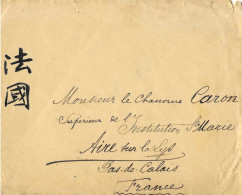 法國
Monsieur le Chanoine Caron
Supérieur de l'Institution Ste Marie
Aire sur la Lys
Pas-de-Calais
France